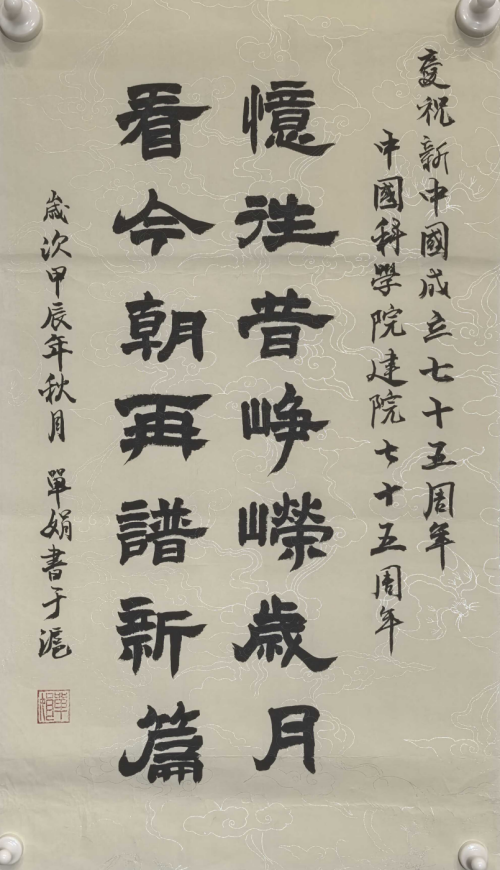 慶祝新中國成立七十五周年
中國科學院建院七十五周年
憶往昔崢嶸歲月
看今朝再譜新篇
歲次甲辰年秋月 單娟書于滬
單娟